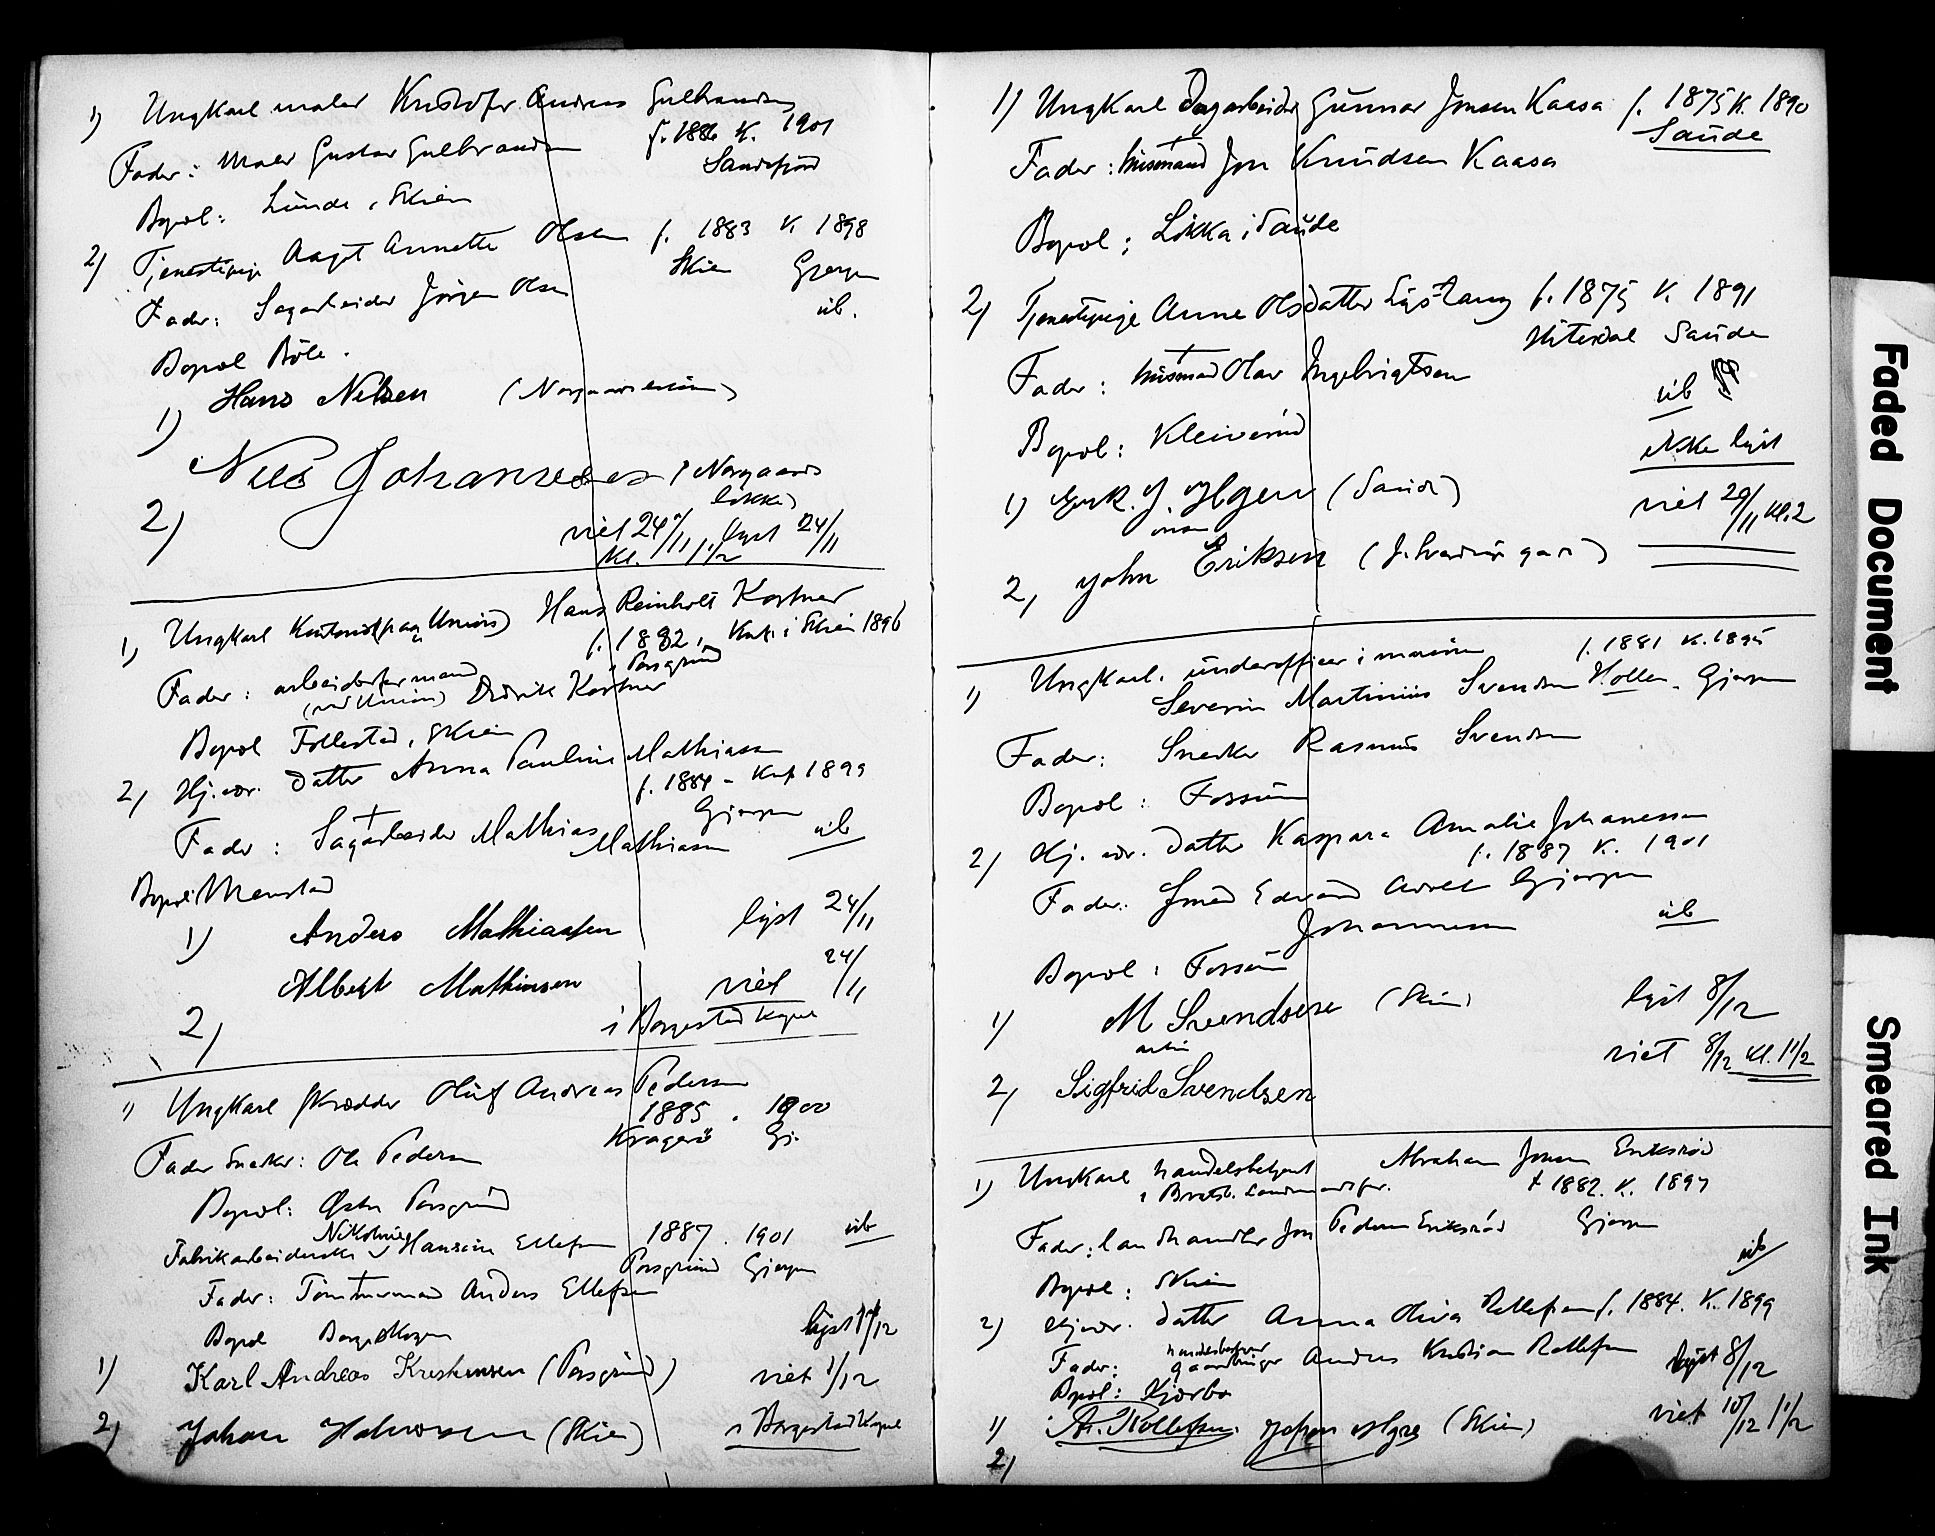 1) Ungkarl maler Kristofer Andreas Gulbrandsen
f. 1886 K. 1901
Fader: Maler Gustav Gulbrandsen Sandefjord
Bopæl: Lunde, Skien
2) Tjenestepige Aagot Annette Olsen f. 1883 K. 1898
Skien Gjerpen
Fader: Sagarbeider Jörgen Olsen üb.
Bopæl Böle.
1) Hans Nilsen
Nils Johannesen (Norgaards
lökke)
2)
viet 24/11, lyst 24/11
Kl. 1 1/2
1) Ungkarl Kontorist (paa Union) Hans Reinholt Kostner
f. 1882, Konf. i Skien 1896
i Porsgrund
Fader: arbeidsformand
(ved Union) Didrik Kostner
Bopæl Follestad, Skien
2) Hj. vær. Datter Anna Pauline Mathiasen
f. 1884 - Konf 1899
Gjerpen
Fader: Sagarbeider Mathias
Mathiasen üb
Bopæl Menstad
1) Anders Mathiassen lyst 24/11
Albert Mathiasen viet 24/11
2) i Borgestad Kapel
1) Ungkarl skrædder Oluf Andreas Pedersen
1885. 1900
Kragerö Gj.
Fader Snedker: Ole Pedersen
Bopæl: Østre Porsgrund
Nikoline
Fabrikarbeiderske Hansine Ellefsen 1887. 1901 üb
Porsgrund Gjerpen
Fader: Tömmermand Anders Ellefsen
Bopæl Borgeskogen lyst 1/12
1) Karl Andreas Kristensen (Porsgrund) viet 1/12
2) Johan Halvorsen (Skien) i Borgestad Kapel
1) Ungkarl Dagarbeider Gunnar Jonsen Kaasa f. 1875 K. 1890
Saude
Fader: husmand Jon Knudsen Kaasa
Bopæl: Lökka i Saude
2) Tjenestepige Anne Olsdatter Lystang f. 1875 K. 1891
Hiterdal Saude
Fader: husmand Olav Ingebrigtsen
üb
Bopæl: Kleiverud
ikke lyst
1) J. Ilgen (Saude) viet 29/11 Kl. 2
2, John Eriksen
1) Ungkarl. underofficer i marinen f. 1881 K. 1895
Severin Martinius Svendsen Hollen. Gjerpen
Fader: Snedker Rasmus Svendsen
Bopæl: Fossum
2) Hj. vær. Datter Kaspara Amalie Johannessen
f. 1887 K. 1901
Fader: Smed Edvard Gjerpen
Johannessen üb
Bopæl: Fossum
1) M Svendsen (Skien) lyst 8/12
viet 8/12 Kl. 1 1/2
2) Sigfrid Svendsen
1) Ungkarl handelsbetjent Abraham Jonsen Eriksröd
i Bratsb. Landmandsfor. f 1882. K. 1897
Fader: landhandler Jon Pedersen Eriksröd Gjerpen
üb
Bopæl: Skien
2) Hj. vær. Datter Anna Oliva Rollefsen f. 1884. K. 1899
Fader: gaardbruger Andreas Kristian Rollefsen
lyst 8/12
Bopæl: Kjørbo
1) A. Rollefsen. (Skien) viet 10/12 1 1/2
2)
Faded Document
Smeared Ink